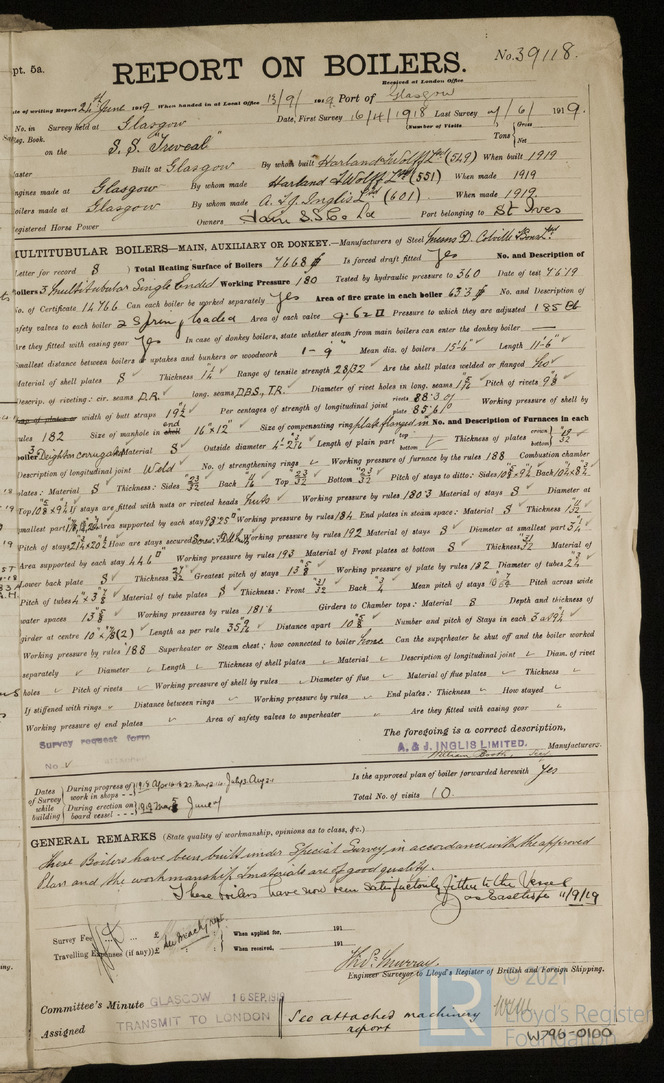 pt. 5a.
REPORT ON BOILERS.
No. 39118.
Received at London Office
te of writing Report 24th June 1919 When handed in at Local Office 13/9/ 1919 Port of Glasgow
No. in Survey held at Glasgow Date, First Survey 16/4/1918 Last Survey 9/6/ 1919.
Reg. Book. (Number of Visits
on the S.S. "Treveal" Tons { Gross Net
Master Built at Glasgow By whom built Harland & Wolff Ltd (549) When built 1919
Engines made at Glasgow By whom made Harland & Wolff Ltd (551) When made 1919
Boilers made at Glasgow By whom made A. & J. Inglis Ld (601) When made 1919
Registered Horse Power Owners Hain S.S. Co Ld Port belonging to St Ives
MULTITUBULAR BOILERS—MAIN, AUXILIARY OR DONKEY.—Manufacturers of Steel Messrs D. Colville & Sons Ltd
Letter for record S Total Heating Surface of Boilers 7668 Is forced draft fitted Yes No. and Description of
Boilers 3 Multitubular Single Ended Working Pressure 180 Tested by hydraulic pressure to 360 Date of test 7.6.19
No. of Certificate 14766 Can each boiler be worked separately Yes Area of fire grate in each boiler 63.3 No. and Description of
safety valves to each boiler 2 Spring loaded Area of each valve 9.62 Pressure to which they are adjusted 185 lb
Are they fitted with easing gear Yes In case of donkey boilers, state whether steam from main boilers can enter the donkey boiler —
Smallest distance between boilers or uptakes and bunkers or woodwork 1'-9" Mean dia. of boilers 15'-6" Length 11'-6"
Material of shell plates S Thickness 1 1/4 Range of tensile strength 28/32 Are the shell plates welded or flanged No
Descrip. of riveting: cir. seams D.R. long. seams D.B.S., T.R. Diameter of rivet holes in long. seams Pitch of rivets 9 1/8
Lap of plates or width of butt straps 19 1/2 Per centages of strength of longitudinal joint rivets 88.3 plate 85.6 Working pressure of shell by
rules 182 Size of manhole in end shell 16" x 12" Size of compensating ring plate flanged in No. and Description of Furnaces in each
boiler 3 Deighton corrugated Material S Outside diameter Length of plain part top bottom Thickness of plates crown bottom 19/32
Description of longitudinal joint Weld No. of strengthening rings Working pressure of furnace by the rules 188 Combustion chamber
plates: Material S Thickness: Sides 23/32 Back Top 23/32 Bottom 23/32 Pitch of stays to ditto: Sides Back
Top If stays are fitted with nuts or riveted heads Nuts Working pressure by rules 180.3 Material of stays S Diameter at
smallest part Area supported by each stay Working pressure by rules 184 End plates in steam space: Material S Thickness
Pitch of stays How are stays secured Working pressure by rules 192 Material of stays S Diameter at smallest part 3 1/4
Area supported by each stay 446 Working pressure by rules 193 Material of Front plates at bottom S Thickness 31/32 Material of
Lower back plate S Thickness Greatest pitch of stays 13 5/8 Working pressure of plate by rules 182 Diameter of tubes 2 3/4
Pitch of tubes Material of tube plates S Thickness: Front 31/32 Back 3/4 Mean pitch of stays Pitch across wide
water spaces 13 5/8 Working pressures by rules 181.6 Girders to Chamber tops: Material S Depth and thickness of
girder at centre 10" x 7/8 (2) Length as per rule Distance apart 10 5/8 Number and pitch of Stays in each
Working pressure by rules 188 Superheater or Steam chest; how connected to boiler None Can the superheater be shut off and the boiler worked
separately Diameter Length Thickness of shell plates Material Description of longitudinal joint Diam. of rivet
holes Pitch of rivets Working pressure of shell by rules Diameter of flue Material of flue plates Thickness
If stiffened with rings Distance between rings Working pressure by rules End plates: Thickness How stayed
Working pressure of end plates Area of safety valves to superheater Are they fitted with easing gear
Survey request form
No.
The foregoing is a correct description,
A. & J. INGLIS LIMITED. Manufacturers.
Dates of Survey while building { During progress of work in shops - - } 1918
{ During erection on board vessel - - - } 1919 June
Is the approved plan of boiler forwarded herewith Yes
Total No. of visits 10.
GENERAL REMARKS (State quality of workmanship, opinions as to class, &c.)
These Boilers have been built under Special Survey in accordance with the approved
Plan and the workmanship & materials are of good quality.
These boilers have now been satisfactorily fitted to the Vessel
11/9/19
Survey Fee £ When applied for, 191
Travelling Expenses (if any) £ When received, 191
Thos. Murray.
Engineer Surveyor to Lloyd's Register of British and Foreign Shipping.
Committee's Minute GLASGOW 16 SEP. 1919
Assigned TRANSMIT TO LONDON
See attached machinery
report
© 2021
LR
Lloyd's Register
Foundation
W796-0100